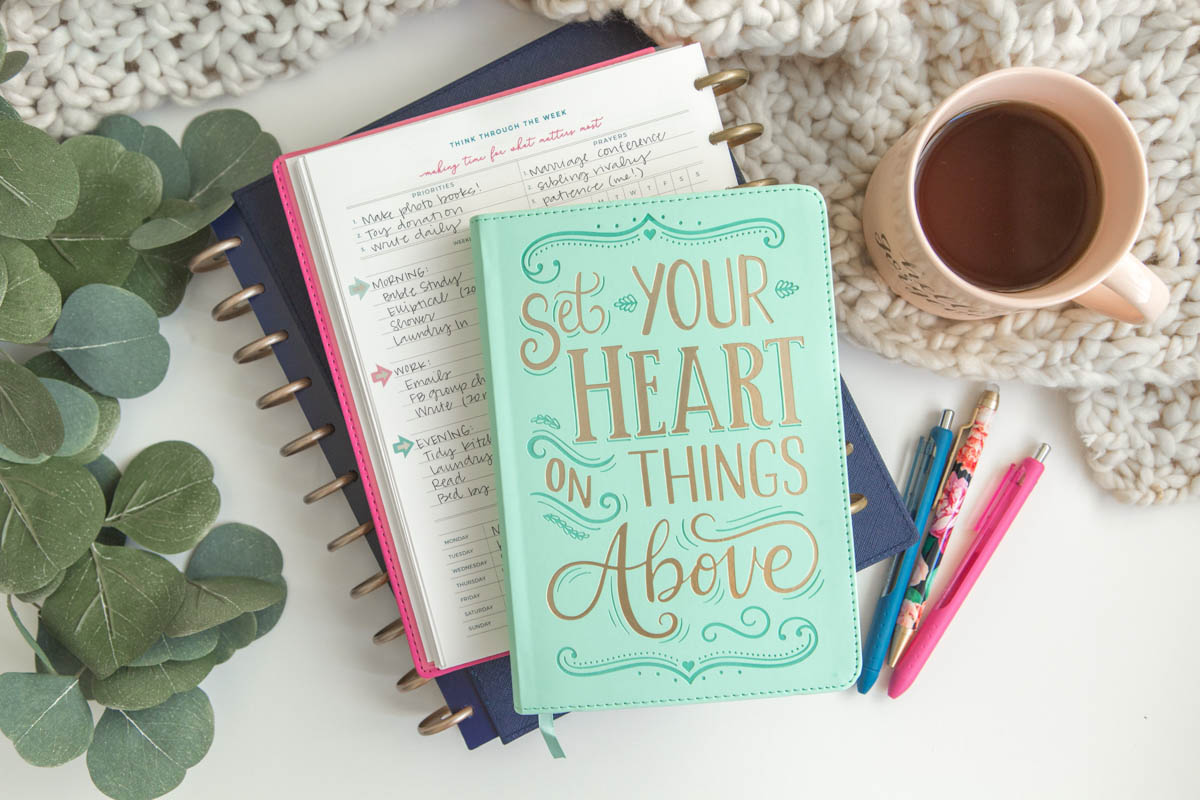 THINK THROUGH THE WEEK
making time for what matters most
PRIORITIES
1. Make photo books!
2. Toy donation
3. Write daily
PRAYERS
1. Marriage conference
2. sibling rivalry
patience (me!)
M T W T F S S
MORNING:
Bible Study
Elliptical (20
Shower
Laundry In
WORK:
Emails
FB group ch
Write (20
EVENING:
Tidy Kitch
Laundry
Read
Bed by
MONDAY
TUESDAY
WEDNESDAY
THURSDAY
FRIDAY
SATURDAY
SUNDAY
Set YOUR
HEART
ON THINGS
Above